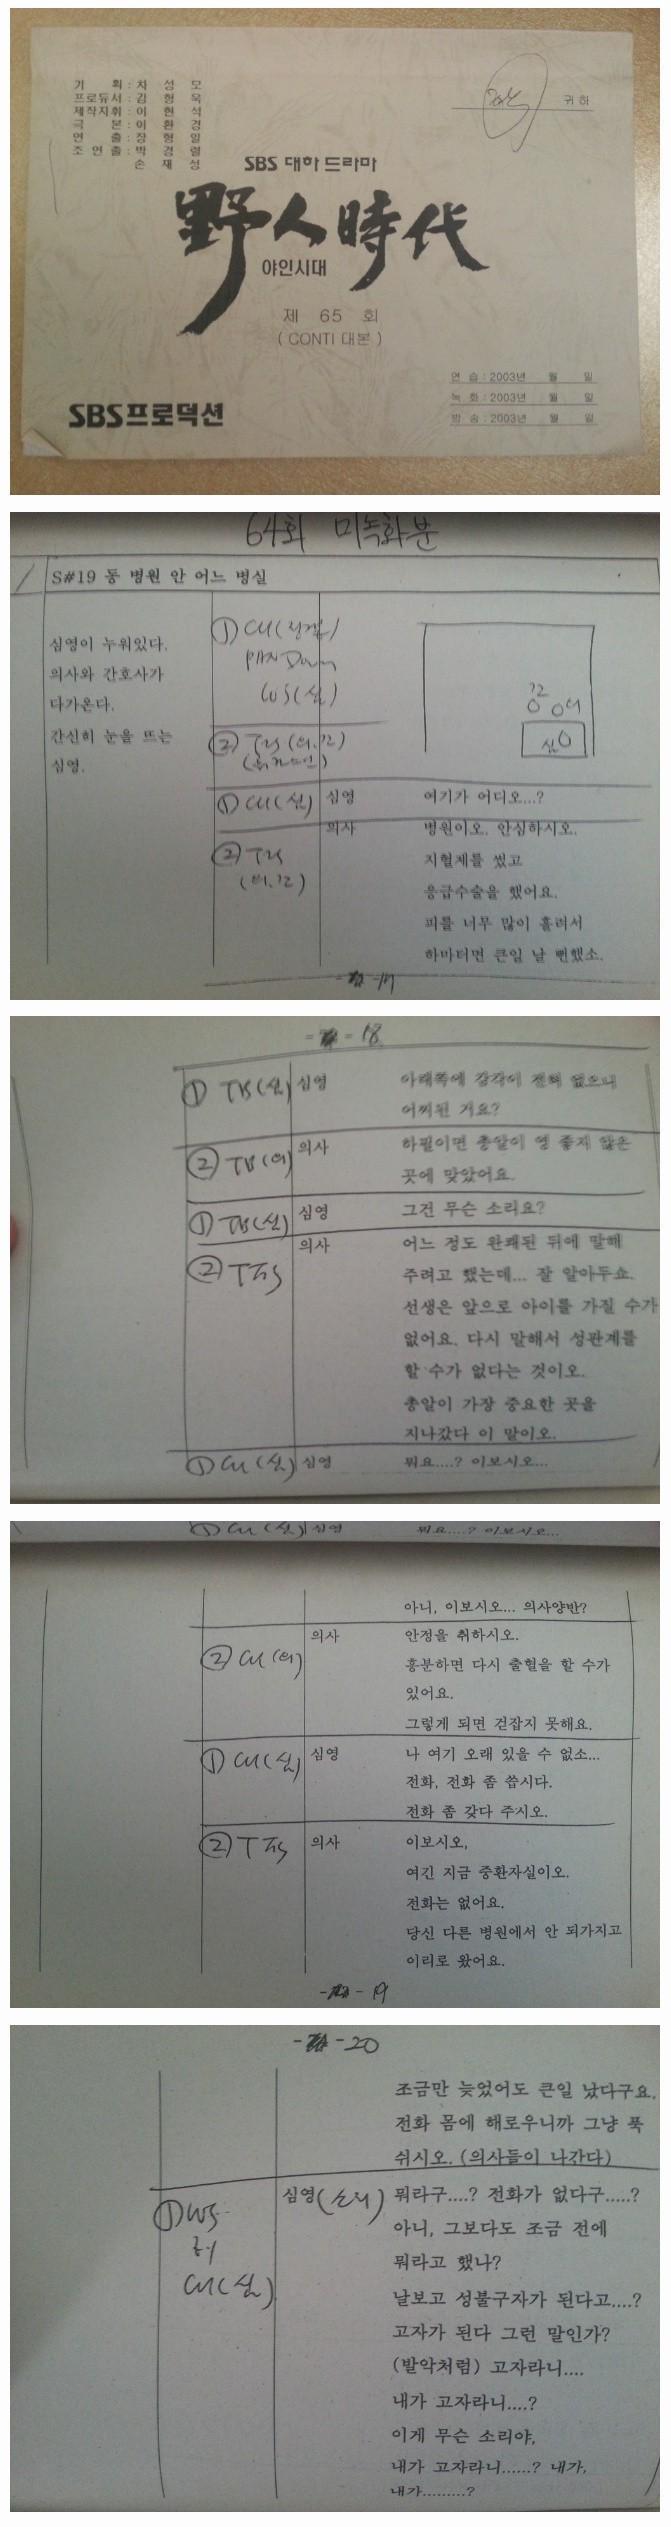 기 획 : 차 성 모
프로듀서 : 김 형 욱
제작지휘 : 이 현 석
극 본 : 이 환 경
연 출 : 장 형 일
조 연 출 : 박 경 렬
손 재 성
귀하
SBS 대하드라마
野人時代
야인시대
제 65 회
( CONTI 대본 )
연 습 : 2003년 월 일
녹 화 : 2003년 월 일
방 송 : 2003년 월 일
SBS프로덕션
64회 미녹화분
S#19 동 병원 안 어느 병실
심영이 누워있다.
의사와 간호사가
다가온다.
간신히 눈을 뜨는
심영.
① CU
PAN Down
WS (심)
② (의.간)
간 의
심
① CU (심) 심영 여기가 어디오...?
② (의.간) 의사 병원이오. 안심하시오.
지혈제를 썼고
응급수술을 했어요.
피를 너무 많이 흘려서
하마터면 큰일 날 뻔했소.
- 17
- 18
① TB (심) 심영 아래쪽에 감각이 전혀 없으니
어찌된 거요?
② TB (의) 의사 하필이면 총알이 영 좋지 않은
곳에 맞았어요.
① TB (심) 심영 그건 무슨 소리요?
② TFS 의사 어느 정도 완쾌된 뒤에 말해
주려고 했는데... 잘 알아두쇼.
선생은 앞으로 아이를 가질 수가
없어요. 다시 말해서 성관계를
할 수가 없다는 것이오.
총알이 가장 중요한 곳을
지나갔다 이 말이오.
① CU (심) 심영 뭐요....? 이보시오...
① CU (심) 심영 뭐요....? 이보시오...
아니, 이보시오... 의사양반?
② CU (의) 의사 안정을 취하시오.
흥분하면 다시 출혈을 할 수가
있어요.
그렇게 되면 걷잡지 못해요.
① CU (심) 심영 나 여기 오래 있을 수 없소...
전화, 전화 좀 씁시다.
전화 좀 갖다 주시오.
② TFS 의사 이보시오,
여긴 지금 중환자실이오.
전화는 없어요.
당신 다른 병원에서 안 되가지고
이리로 왔어요.
- 19
- 20
조금만 늦었어도 큰일 났다구요.
전화 몸에 해로우니까 그냥 푹
쉬시오. (의사들이 나간다)
① WS 심영 (소리) 뭐라구....? 전화가 없다구.....?
CU (심) 아니, 그보다도 조금 전에
뭐라고 했나?
날보고 성불구자가 된다고....?
고자가 된다 그런 말인가?
(발악처럼) 고자라니....
내가 고자라니....?
이게 무슨 소리야,
내가 고자라니......? 내가,
내가.........?